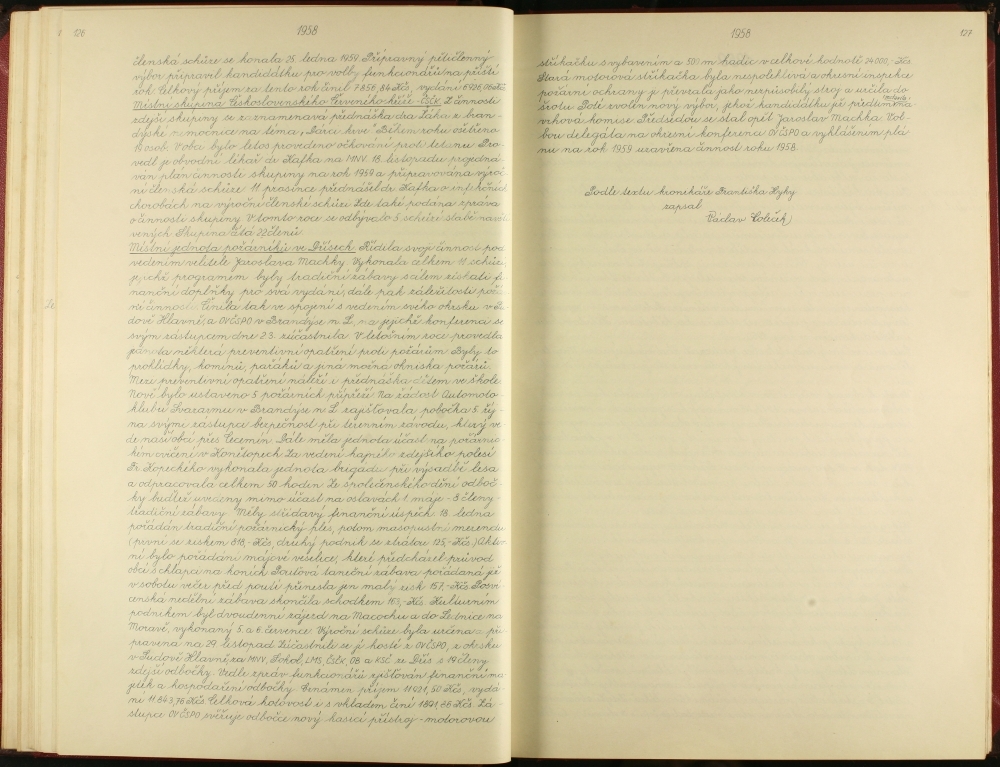 126
1958
členská schůze se konala 25. ledna 1959. Přípravný pětičlenný
výbor připravil kandidátku pro volby funkcionářů na příští
rok. Celkový příjem za tento rok činil 7.856,84 Kčs, vydání
Místní skupina Československého Červeného kříže - ČSČK. Z činnosti
zdejší skupiny se zaznamenává přednáška dra Žáka z bran-
dýské nemocnice na téma „Dárci krve". Během roku ošetřeno
osob. V obci bylo letos provedeno očkování proti tetanu. Pro-
vedl je obvodní lékař dr. Kafka na MNV. 18. listopadu projedná-
ván plán činnosti skupiny na rok 1959 a připravována výroč-
ní členská schůze. 11. prosince přednášel dr. Kafka o infekčních
chorobách na výroční členské schůzi. Zde také podána zpráva
o činnosti skupiny. V tomto roce se odbývalo 5 schůzí slabě navští-
vených. Skupina čítá 22 členů.
Místní jednota požárníků ve Dřísech. Řídila svoji činnost pod
vedením velitele Jaroslava Machky. Vykonala celkem 11 schůzí,
jejichž programem byly tradiční zábavy s cílem získati fi-
nanční doplňky pro svá vydání, dále pak záležitosti požár-
ní činnosti. Činila tak ve spojení s vedením svého okrsku v Su-
dově Hlavně, a OVČSPO v Brandýse n. L., na jejichž konferenci se
svým zástupcem dne 2.3. zúčastnila. V letošním roce provedla
jednota některá preventivní opatření proti požárům. Byly to
prohlídky, komínů, pařáků a jiná možná ohniska požárů.
Mezi preventivní opatření náleží i přednáška dětem ve škole.
Nově bylo ustaveno 5 požárních přípřeží. Na žádost Automoto-
klubu Svazarmu v Brandýse n. L. zajišťovala pobočka 5. říj-
na svými zástupci bezpečnost při terénním závodu, který ve-
de naší obcí přes Cecemín. Dále měla jednota účast na požárnic-
kém cvičení v Konětopech. Za vedení hajného zdejšího polesí
Fr. Kopeckého vykonala jednota brigádu při výsadbě lesa
a odpracovala celkem 50 hodin. Ze společenského dění odboč-
ky buďtež uvezeny mimo účast na oslavách 1. máje - 8 členy -
tradiční zábavy. Měly střídavý finanční úspěch. 18. ledna
pořádán tradiční požárnický ples, potom masopustní merenda
(první se ziskem 818,- Kčs, druhý podnik se ztrátou 125,- Kčs.)
ní bylo pořádání májové veselice, které předcházel průvod
obcí s chlapci na koních. Pouťová taneční zábava pořádaná již
v sobotu večer před poutí přinesla jen malý zisk 157,- Kčs. Posví-
censká nedělní zábava skončila schodkem 163,- Kčs. Kulturním
podnikem byl dvoudenní zájezd na Macochu a do Lednice na
Moravě, vykonaný 5. a 6. července. Výroční schůze byla určena a při-
pravena na 29. listopad. Zúčastnili se jí hosté z OVČSPO, z okrsku
v Sudově Hlavně, za MNV, Sokol, LMS, ČSČK, OB a KSČ ze Dřís s 19 členy
zdejší odbočky. Vedle zpráv funkcionářů zjišťován finanční ma-
jetek a hospodaření odbočky. Oznámen příjem 11.921,50 Kčs, vydá-
ní 11.843,76 Kčs. Celková hotovost i s vkladem činí 1891,65 Kčs. Zá-
stupce OVČSPO svěřuje odbočce nový hasicí přístroj - motorovou
1958
127
stříkačku s vybavením a 50 m hadic v celkové hodnotě 24.000,- Kčs.
Stará motorová stříkačka byla nespolehlivá a okresní inspekce
požární ochrany ji převzala jako nezpůsobilý stroj a určila do
šrotu. Poté zvolen nový výbor, jehož kandidátku již předem
vrhová komise. Předsedou se stal opět Jaroslav Machka. Vol-
bou delegáta na okresní konferenci OVČSPO a vyhlášením plá-
nu na rok 1959 uzavřena činnost roku 1958.
Podle textu kronikáře Františka Hyky
zapsal
Václav